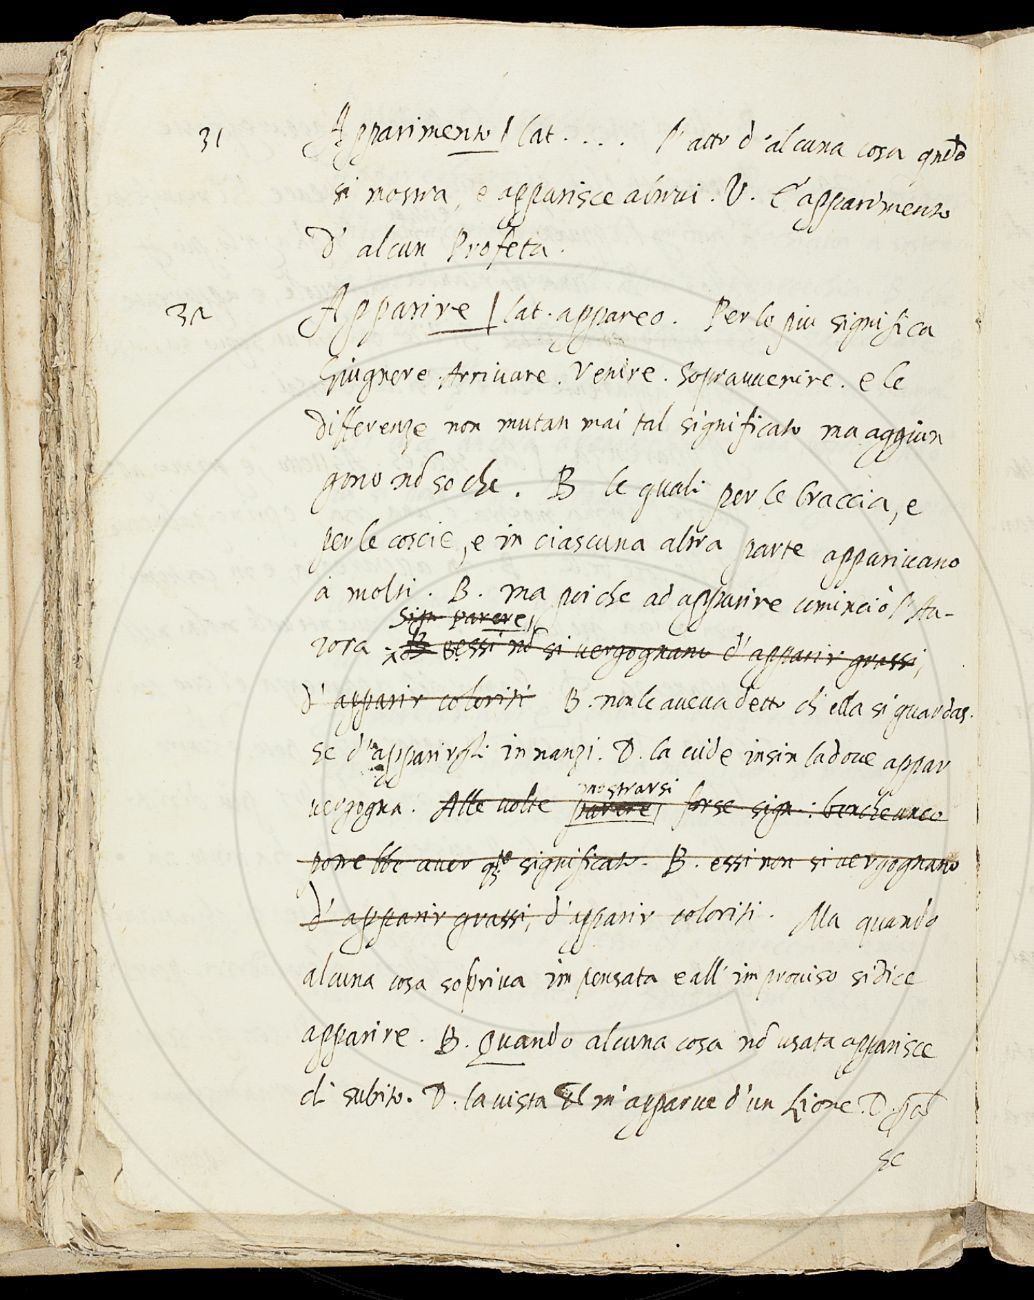 31 Apparimento | lat. . . . l'atto d'alcuna cosa qndo
si mostra, e apparisce altrui. V. l'apparimento
d'alcun Profeta.
32 Apparire | lat. appareo. Per lo piu significa
Giugnere. Arrivare. Venire. Sopravvenire. e le
differenze non mutan mai tal significato ma aggiun
gono nō so che. B le quali per le braccia, e
per le coscie, e in ciascuna altra parte apparivano
à molti. B. ma poi che ad apparire cominciò l'Au-
Sign parere
rora B essi nō si vergognano d'apparir grassi,
d'apparir coloriti B. non le aveva detto ch'ella si guardas
se d'apparirgli innanzi. D. la vide insin ladove appar
mostrarsi
vergogna. Alle volte parere forse sign: benche anco
potrebbe aver significato. B. essi non si vergognano
d'apparir grassi, d'apparir coloriti. Ma quando
alcuna cosa arriva impensata e all'improviso si dice
apparire. B. Quando alcuna cosa nō usata apparisce
di subito. D. la vista che m'apparve d'un Lione. D.
se